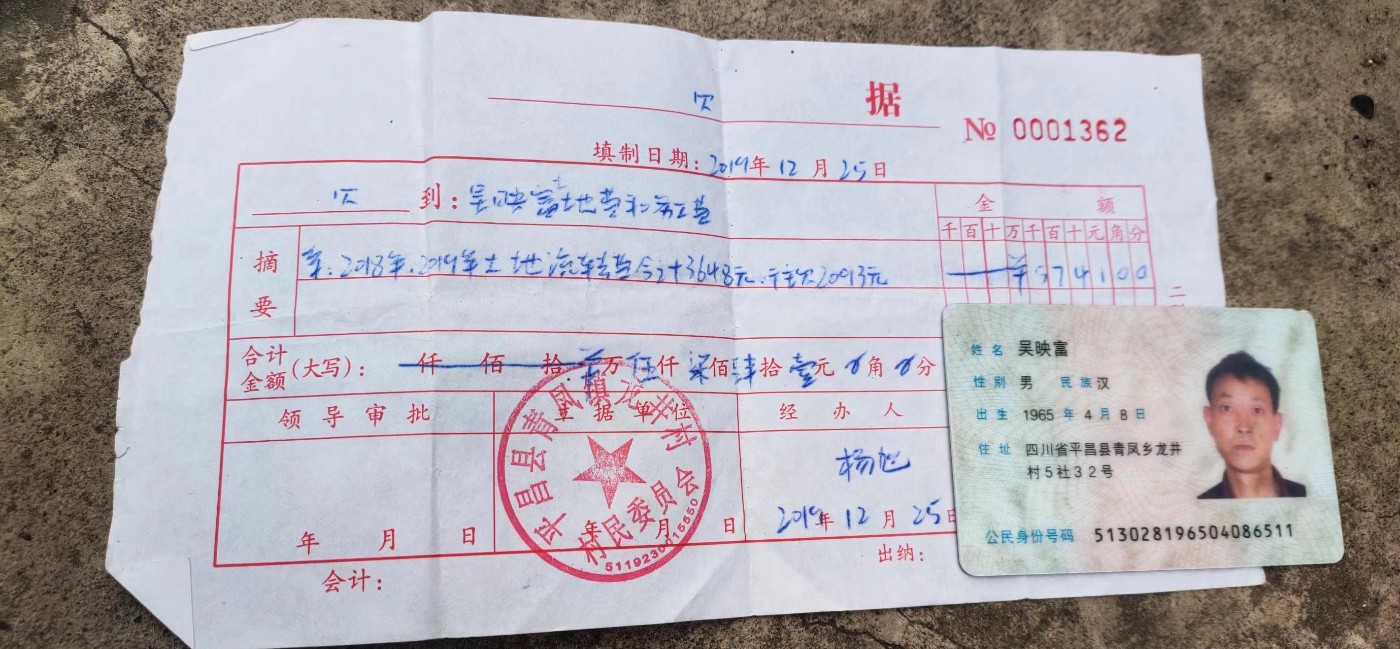 欠 据
№ 0001362
填制日期：2019年 12 月 25日
欠 到：吴映富土地费和务工费
金 额
千百十万千百十元角分
摘要
年、2018年、2019年土地流转费合计3648元、 2093元
¥574100
合计金额(大写)： 仟 佰 拾 万 伍仟 柒佰 肆拾 壹元 0角 0分
领导审批
立据单位
经办人
杨旭
年 月 日
年 月 日
2019年 12 月 25日
会计：
出纳：
平昌县青凤镇龙井村
村民委员会
5119230015550
姓名 吴映富
性别 男 民族 汉
出生 1965 年 4 月 8 日
住址 四川省平昌县青凤乡龙井
村5社32号
公民身份号码 513028196504086511